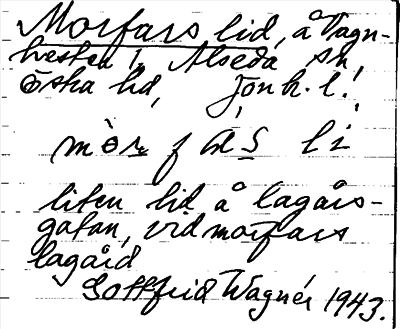 Morfars lid, å Vagn-
hester i Alseda sn,
Östra hd, Jönk. l.
mòr fàs li
liten lid å lagårs-
gatan, vid morfars
lagård
Gottfrid Wagnér 1943.